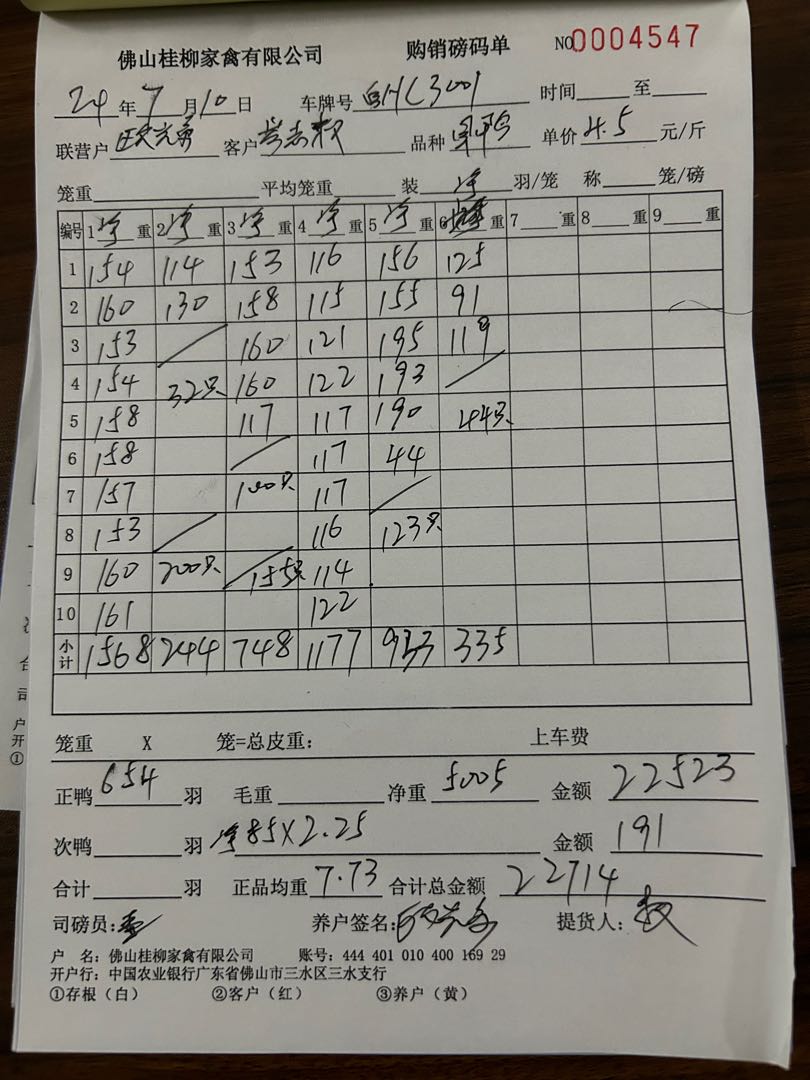 佛山桂柳家禽有限公司 购销磅码单 NO0004547
24年7月10日 车牌号 HC3001 时间 至
联营户 客户 品种 单价 4.5 元/斤
笼重 平均笼重 装 净 羽/笼 称 笼/磅
编号 1净重 2净重 3净重 4净重 5净重 6 重 7 重 8 重 9 重
1 154 114 153 116 156 125
2 160 130 158 115 155 91
3 153 160 121 195 119
4 154 32只 160 122 193
5 158 117 117 190 444只
6 158 117 44
7 157 100只 117
8 153 116 123只
9 160 200只 155只 114
10 161 122
小计 1568 244 748 1177 933 335
笼重 X 笼=总皮重: 上车费
正鸭 654 羽 毛重 净重 5005 金额 22523
次鸭 羽 净85X2.25 金额 191
合计 羽 正品均重 7.73 合计总金额 22714
司磅员: 养户签名: 提货人:
户 名: 佛山桂柳家禽有限公司 账号: 444 401 010 400 169 29
开户行: 中国农业银行广东省佛山市三水区三水支行
①存根(白) ②客户(红) ③养户(黄)